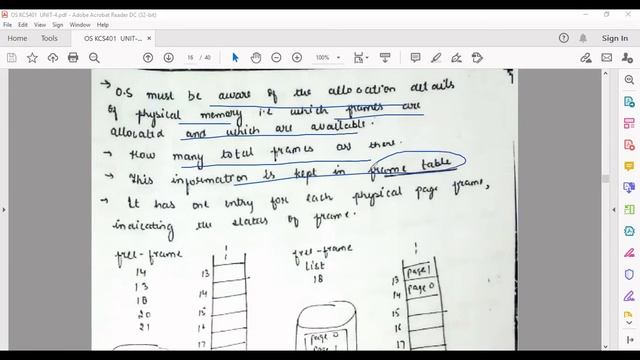 OS KCS401 UNIT-4.pdf - Adobe Acrobat Reader DC (32-bit)
File Edit View Sign Window Help
Home Tools OS KCS401 UNIT-... ×
Sign In
16 / 40 100%
→ O.S must be aware of the allocation details
of physical memory i.e which frames are
allocated and which are available.
→ How many total frames are there.
→ This information is kept in frame table
→ It has one entry for each physical page frame,
indicating the status of frame.
free-frame
14
13
18
20
21
13
14
15
16
17
free-frame
list
18
page 0
page 1
13 page 1
14 page 0
15
16
17